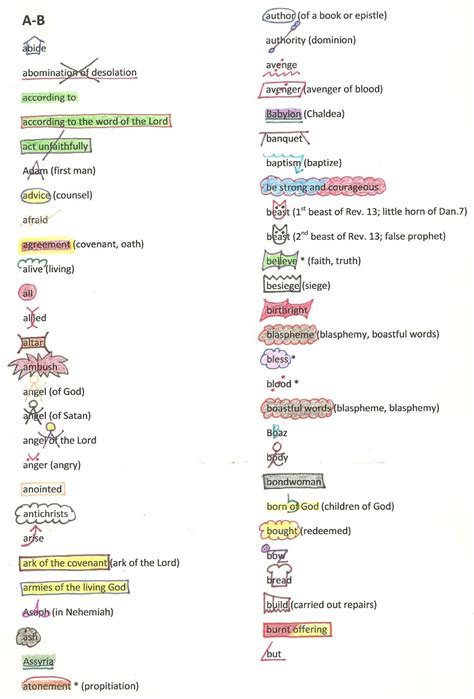 A-B
abide
abomination of desolation
according to
according to the word of the Lord
act unfaithfully
Adam (first man)
advice (counsel)
afraid
agreement (covenant, oath)
alive (living)
all
allied
altar
ambush
angel (of God)
angel (of Satan)
angel of the Lord
anger (angry)
anointed
antichrists
arise
ark of the covenant (ark of the Lord)
armies of the living God
Asaph (in Nehemiah)
ash
Assyria
atonement * (propitiation)
author (of a book or epistle)
authority (dominion)
avenge
avenger (avenger of blood)
Babylon (Chaldea)
banquet
baptism (baptize)
be strong and courageous
beast (1st beast of Rev. 13; little horn of Dan.7)
beast (2nd beast of Rev. 13; false prophet)
believe * (faith, truth)
besiege (siege)
birthright
blaspheme (blasphemy, boastful words)
bless *
blood *
boastful words (blaspheme, blasphemy)
Boaz
body
bondwoman
born of God (children of God)
bought (redeemed)
bow
bread
build (carried out repairs)
burnt offering
but